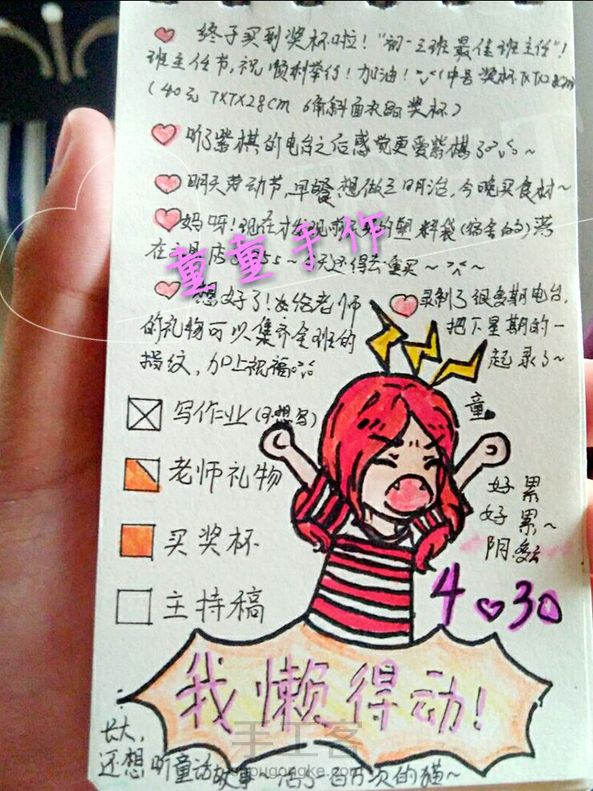 终于买到奖杯啦！"初一三班最佳班主任"！
班主任节，祝顺利举行！加油！(中号奖杯
(40元 7X7X28cm 6角斜面水晶奖杯)
听了紫棋的电台之后感觉更爱紫棋了
明天劳动节，早餐想做三明治，今晚买食材~
妈呀！现在才发现
的塑料袋(宿舍的)落
在 店 还得去重买~
想好了！好给老师
的礼物可以集齐全班的
指纹，加上祝福
录制了很多期电台，
把下星期的一
起录了~
童童手作
写作业(不想写)
老师礼物
买奖杯
主持稿
童
好累
好累~
阴
4 30
我懒得动！
长大，
还想听童话故事~活了百万次的猫~
手工客